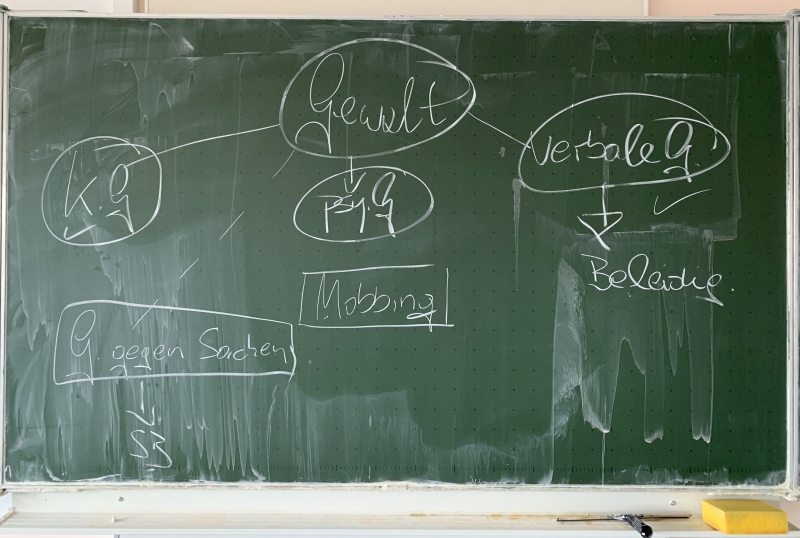 Gewalt
K. G
psy. G
verbale G.
Beleidig.
Mobbing
G. gegen Sachen